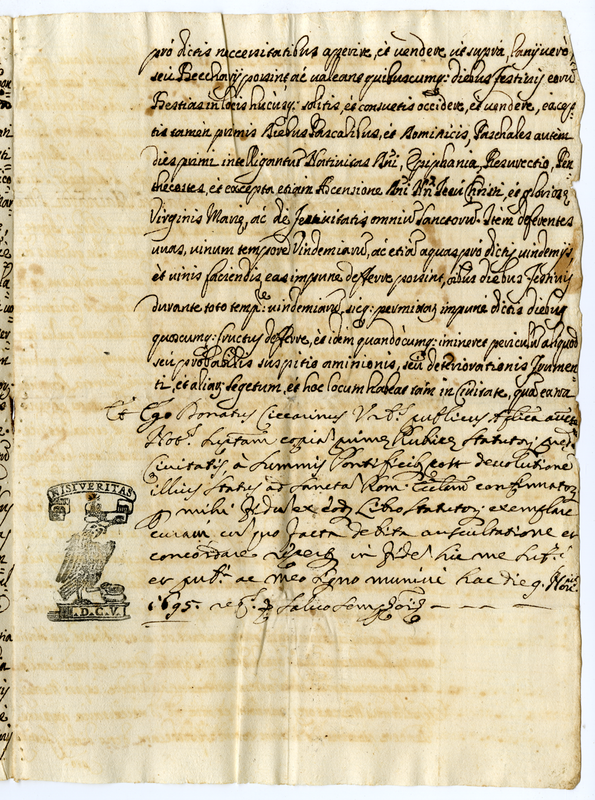 prò dictis neccessitatibus aperire, et vendere ut suprà, lanij verò
seu Beccharij possint, ac valeant quibuscumq: diebus festivis eorum
Bestias in locis hucusq: solitis, et consuetis occidere, et vendere, excep=
tis tamen primis diebus Pascalibus, et Dominicis, Paschales autem
dies primi intelligantur Nativitas Dñi, Epiphania, Resurrectio, Pen
thecostes, et excepta etiam Ascensione Dñi Ñri Iesu Christi, et gloriosæ
Virginis Mariæ, ac de festivitatis omnium Sanctorum. Item deferentes
uvas, vinum tempore vindemiarum, ac etiam aquas prò dictis vindemijs
et vinis faciendis, eas impune defferre possint, diebus festivis
durante toto temp: vindemiarum, sicq: permittatur impunè dictis diebus
quoscumq: fructus defferre, et idem quandocumq: immineret periculum aliquod
seu probabilis suspitio amissionis, seu deteriorationis frumen=
ti, et aliarum segetum, et hoc locum habeat tàm in Civitate, quam extra
Et Ego Donatus Ciccarinus Urb: publicus Aplica auct:
Not: suptam copiam primæ Rubricæ Statutor: præd:
Civitatis, à Summis Pontificib: post devolutionem
illius Status ad Sanctam Rom: Ecclam confirmator:
mihi ex eod: Libro Statutor: exemplare
curavi, cui pro facta debita auscultatione et
concordare in fidem hic me subs:
et pub: ac meo signo munivi hac die 9. Novbr:
1695. salvo semp:
NISI VERITAS
M.D.C.V.